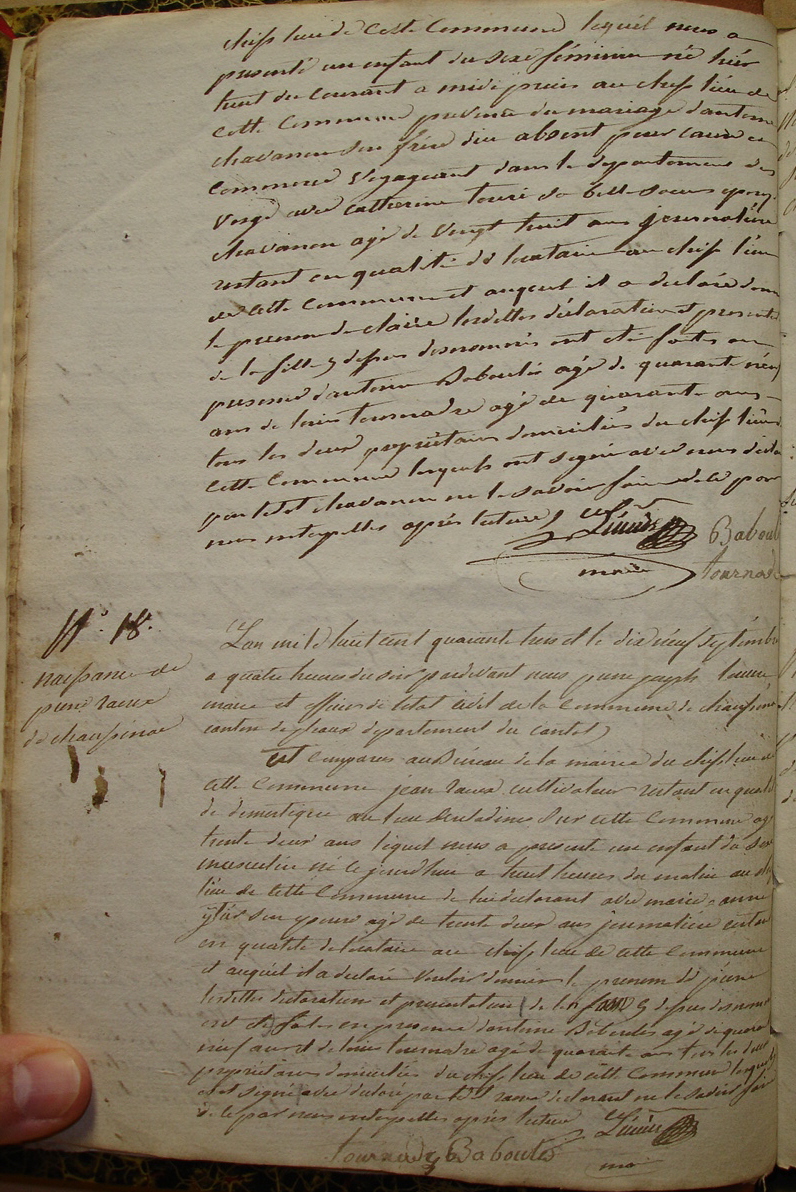 chef lieu de cette Commune lequel nous a
presenté un enfant du sexe féminin né hier
huit du Courant a midi précis au chef lieu de
cette Commune provenu du mariage d'antoine
chavanon son frère dit absent pour cause de
Commerce voyageant dans le departement des
Vosge avec Catherine sa belle soeur epouse
chavanon agé de vingt huit ans journalière
restant en qualité de locataire au chef lieu
de cette Commune et auquel il a declaré donner
le prenom de claire lesdittes déclaration et presentation
de la fille y dessus denommés ont été faites en
presence d'antoine Baboulés agé de quarante neuf
ans de louis tournadre agé de quarante ans
tous les deux propriétaires domiciliés du chef lieu de
cette Commune lesquels ont signé avec nous
par ledit chavanon ne le savoir faire de ce par
nous interpellés après lecture
Baboul
maire
tournad
N° 18.
naissance de
pierre
de
L'an mil huit cent quarante trois et le dix neuf septembre
a quatre heures du soir pardevant nous pierre joseph
maire et officier de letat civil de la Commune de
canton de departement du cantal
Est comparu au Bureau de la mairie du chef lieu de
cette Commune jean cultivateur restant en qualité
de domestique au lieu sur cette Commune agé
trente deux ans lequel nous a presenté un enfant du sexe
masculin né ce jourdhui a huit heures du matin au chef
lieu de cette Commune de lui declarant avec marie anne
son epouse agé de trente deux ans journalière restant
en qualité de locataire au chef lieu de cette Commune
et auquel il a declaré vouloir donner le prenom de pierre
lesdittes declaration et presentation de lenfant y dessus denommé
ont été faites en presence dantoine Baboulés agé de quarante
neuf ans et de louis tournadre agé de quarante ans tous les deux
propriétaires domiciliés du chef lieu de cette Commune lesquels
ont signé avec par ledit declarant ne le savoir faire
de ce par nous interpellés après lecture
tournadre Baboulés